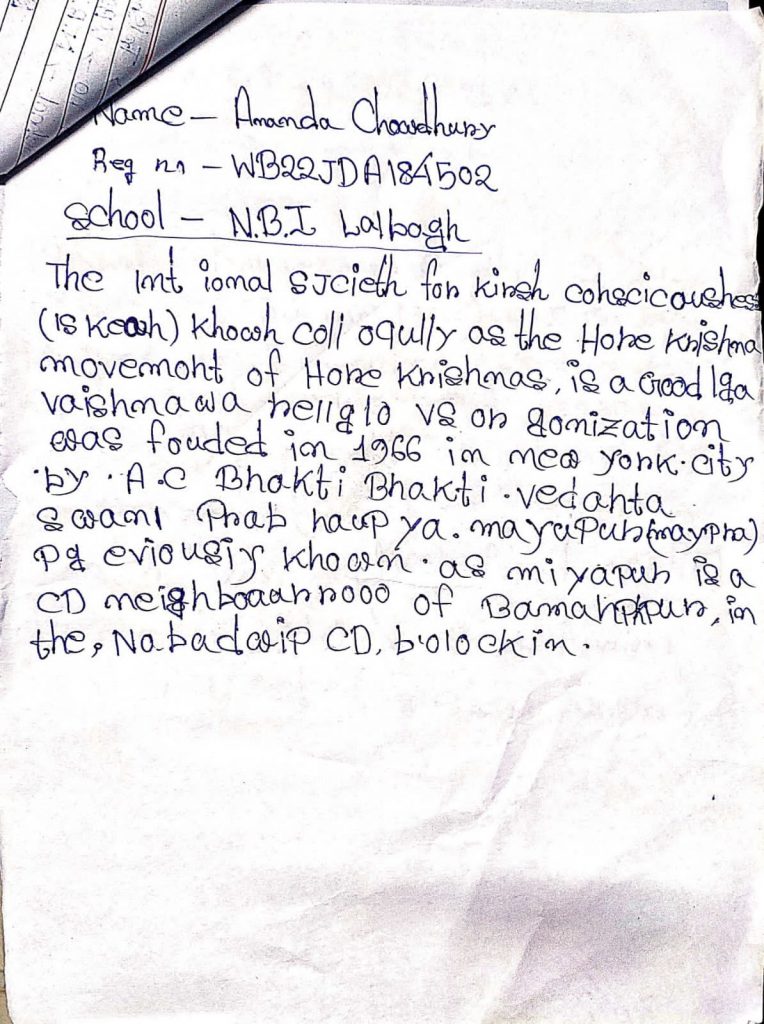 Name - Ananda Chowdhury
Reg no - WB22JDA184502
School - N.B.I Lalbagh
The Int ional SJcieth for Kirsh Cohscicoushes
(IS Keosh) Khowh coll oqully as the Hore Krishna
movemoht of Hore Krishnas, is a Good Iga
vaishnawa rellglo vs or gonization
was fouded in 1966 in new york.city
.by .A.C Bhakti Bhakti.vedahta
Swami Prab haup ya. mayapur (maypra)
Pg eviousiy Khown. as miyapur is a
CD neighboaarhooo of Bamanpkpur, in
the, Nabadwip CD, b.olockin.